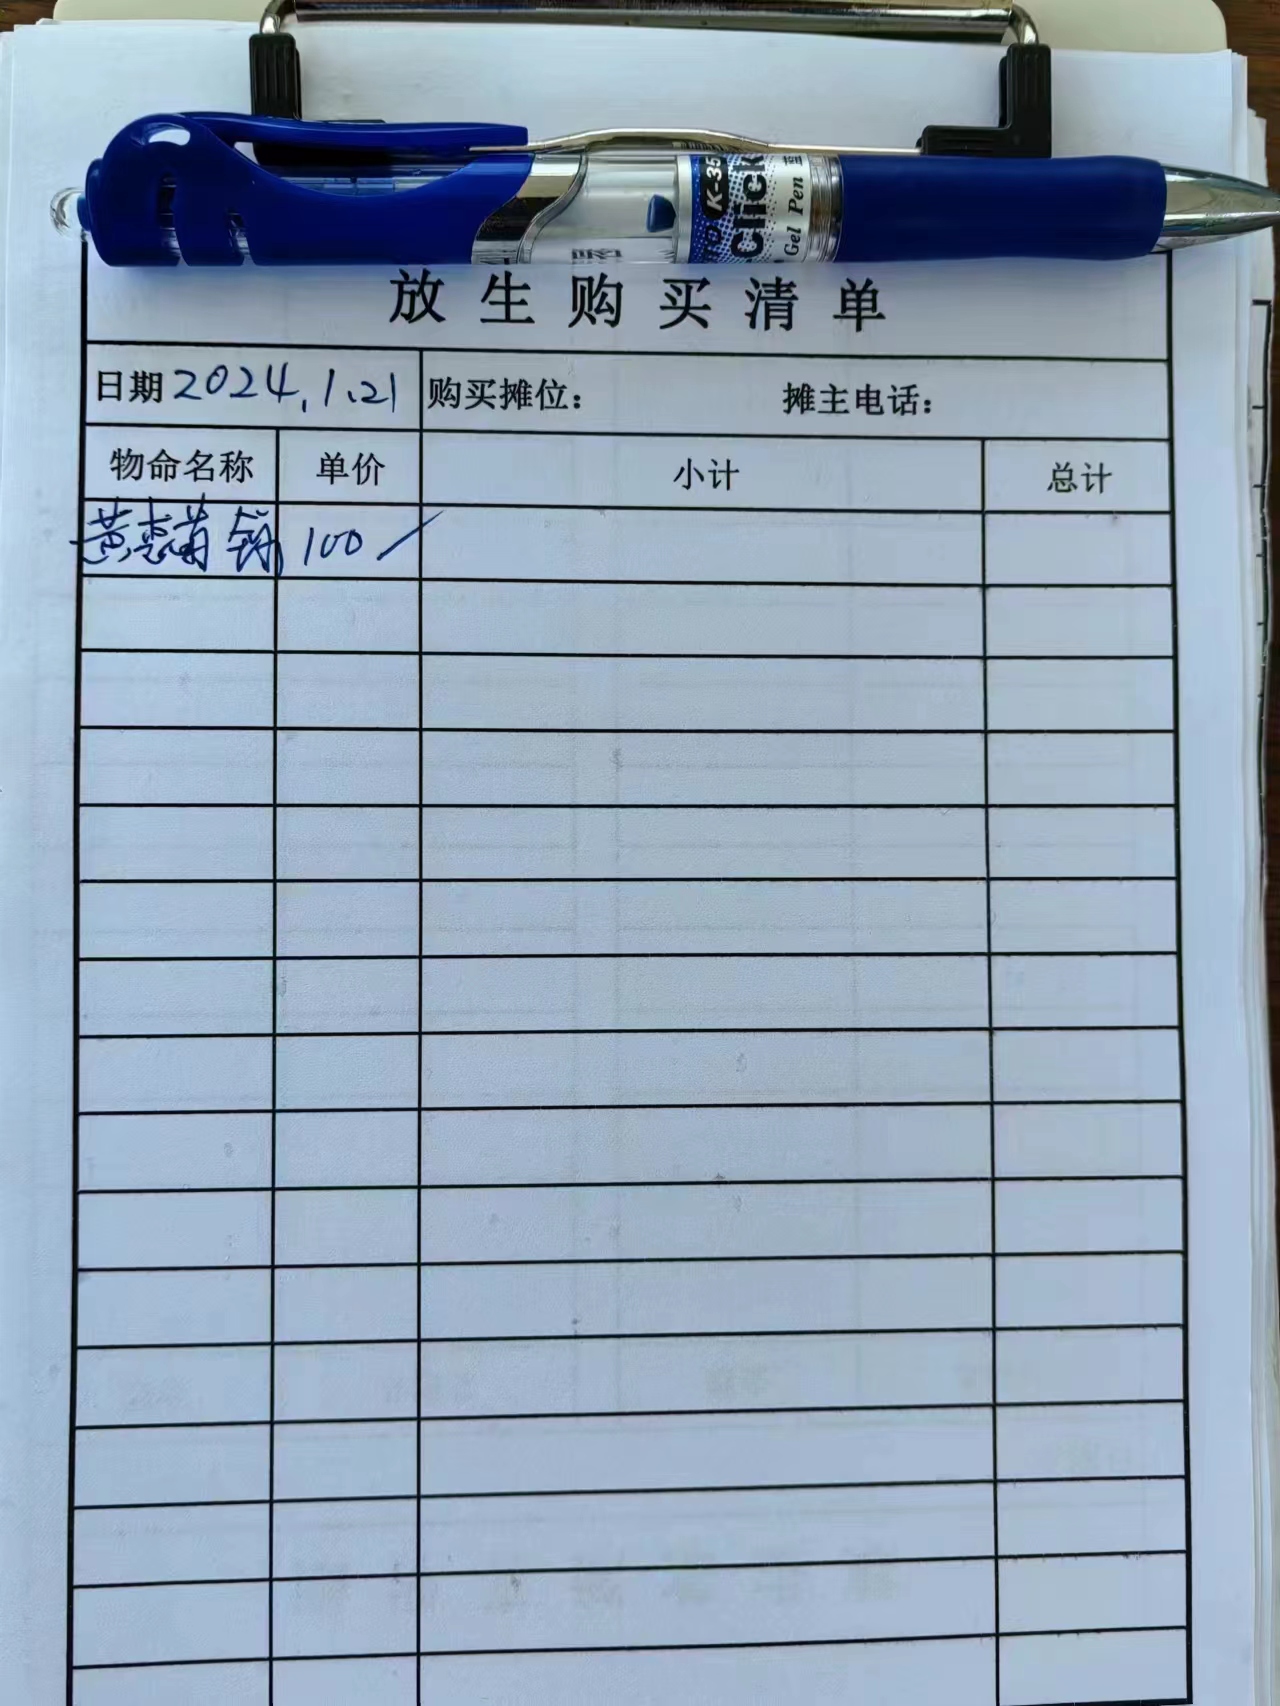 K-35
Click
Gel Pen 蓝
放生购买清单
日期 2024.1.21 购买摊位： 摊主电话：
物命名称 单价 小计 总计
黄 100/